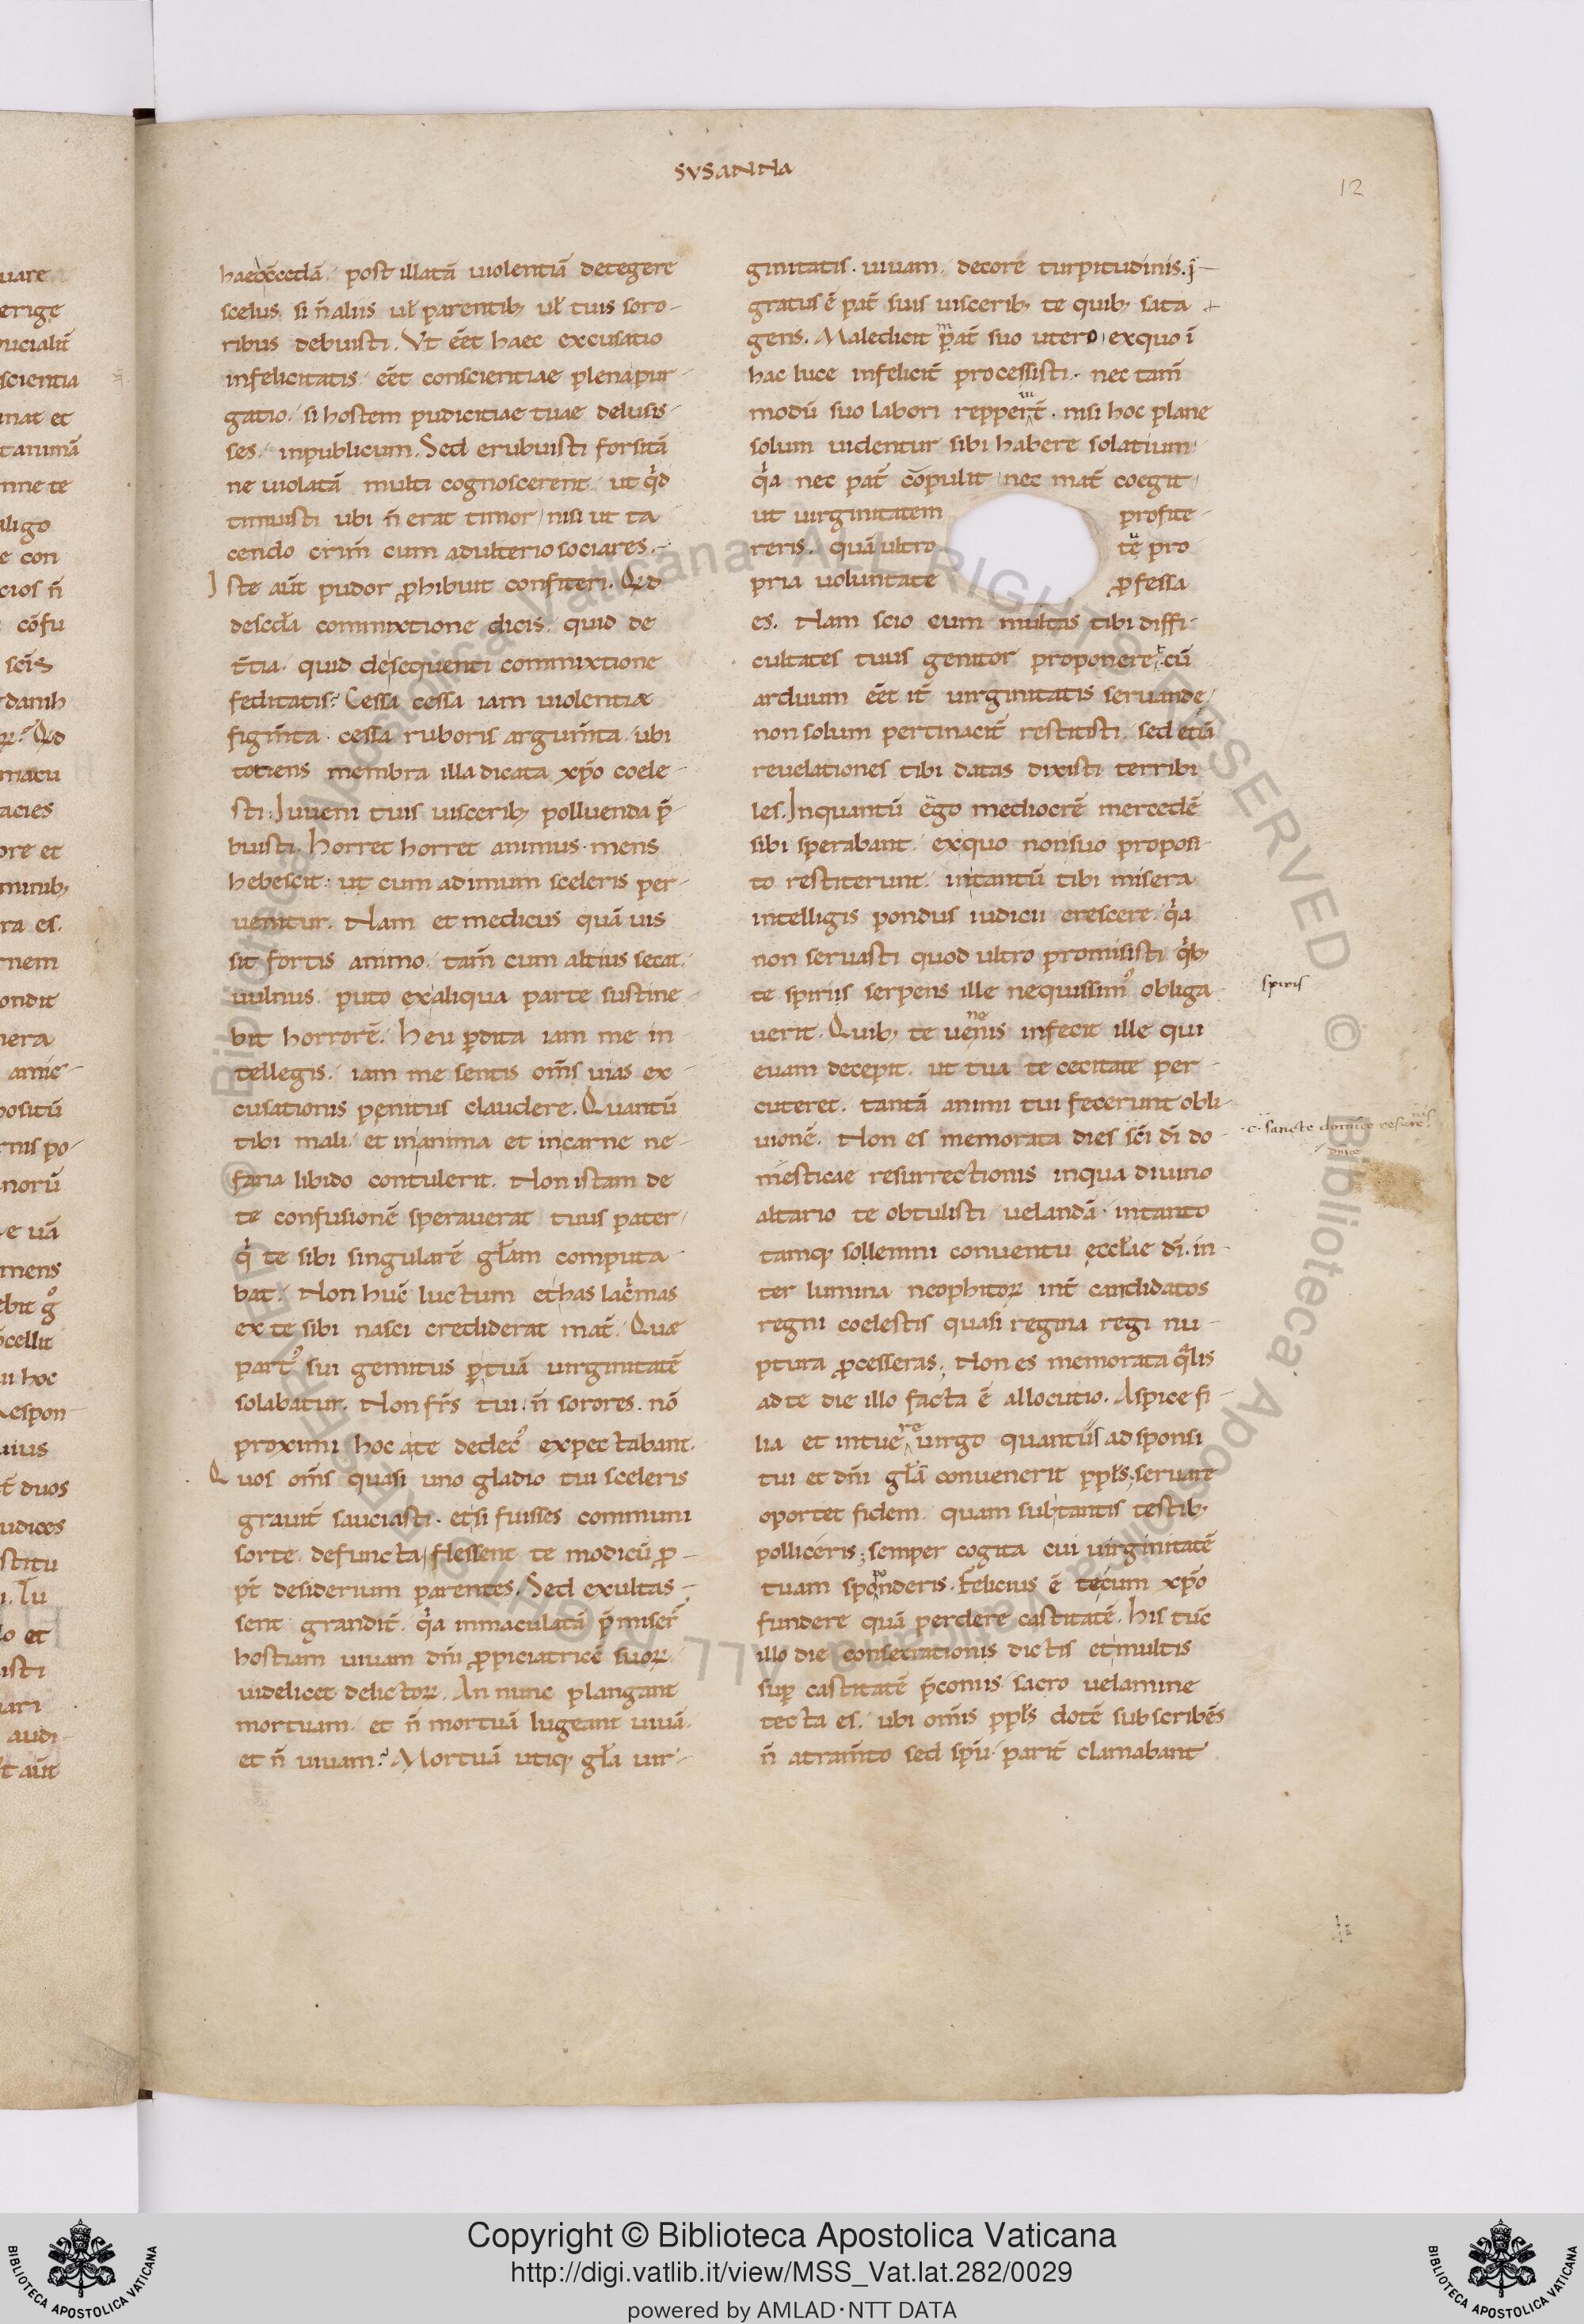 SVSANNA
12
haec cedā. post illatā uiolentiā detegere
scelus. si n̄ aliis ul̄ parentib; ul̄ tuis soro-
ribus debuisti. Vt eēt haec excusatio
infelicitatis. eēt conscientiae plena pur-
gatio. si hostem pudicitiae tuae delusis-
ses. inpublicum. Sed erubuisti forsitā
ne uiolatā multi cognoscerent. ut qd
timuisti ubi n̄ erat timor, nisi ut ta
cendo crim̄ cum adulterio sociares.
Iste aūt pudor ꝓhibuit confiteri. Qd
de sccl̄a commixtione dicis. quid de
t̄tia. quid de sequenti commixtione
feditatis? Cessa cessa iam uiolentiæ
figm̄ta. cessa ruboris argum̄ta. ubi
totiens membra illa dicata xp̄o coele-
sti: Iuueni tuis uisceribꝫ polluenda p̄-
buisti. Horret horret animus. mens
hebescit. ut cum ad imum sceleris per-
uenitur. Nam et medicus quā uis
sit fortis animo. tam̄ cum altius secat.
uulnus. puto ex aliqua parte sustine-
bit horrorē. Heu ꝑdita iam me in
tellegis. iam me sentis om̄s uias ex-
cusationis penitus claudere. Quantū
tibi mali. et in anima et in carne ne-
faria libido contulerit. Non istam de
te confusionē sperauerat tuus pater,
q̇ te sibi singularē gl̄am computa-
bat. Non hunc̄ luctum et has lac̄mas
ex te sibi nasci crediderat mat̄. Quae
part᷒ sui gemitus ꝑ tuā uirginitatē
solabatur. Non fr̄s tui. n̄ sorores. nō
proximi hoc a te dedec᷒ expectabant.
Quos om̄s quasi uno gladio tui sceleris
grauit̄ sauciasti. et si fuisses communi
sorte defuncta, flessent te modicū ꝓ-
pt̄ desiderium parentes. Sed exultas-
sent grandit̄. qa inmaculatā p̄miser̄
hostiam uiuam dn̄i ꝓpiciatricē suoꝝ
uidelicet delictoꝝ. An nunc plangant
mortuam. et n̄ mortuā lugeant uiuā.
et n̄ uiuam? Mortuā utiq; gl̄a uir-
ginitatis. uiuam. decore turpitudinis. I-
gratus ē pat̄ suis uiscerib; te quib; sata
gens. Maledicit mat̄ suo utero, ex quo ī
hac luce infelicit̄ processisti. nec tam̄
modū suo labori repperiūt. nisi hoc plane
solum uidentur sibi habere solatium
qa nec pat̄ cōpulit, nec mat̄ coegit,
ut uirginitatem profite-
reris. quā ultro tē pro
pria uoluntate ꝓfessa
es. Nam scio eum multas tibi diffi-
cultates tuus genitor proponeret. cū
arduum eēt it̄ uirginitatis seruande,
non solum pertinacit̄ restitisti. sed etiā
reuelationes tibi datas dixisti terribi-
les. Inquantū ego mediocrē mercedē
sibi sperabant. ex quo non suo proposi-
to restiterunt. in tantū tibi misera
intelligis pondus iudicii crescere. qa
non seruasti quod ultro promisisti. qb;
te spiriis serpens ille nequissim᷒ obliga
uerit. Quib; te uenenis infecit ille qui
euam decepit. ut tua te cecitate per-
cuteret. tantā animi tui fecerunt obli-
uionē. Non es memorata dies sc̄i dī do-
mesticae resurrectionis in qua diuino
altario te obtulisti uelandā. in tanto
tamq; sollemni conuentu ecclīae dī. in-
ter lumina neophitoꝝ int̄ candidatos
regni coelestis quasi regina regi nu-
ptura ꝓcesseras. Non es memorata qlis
ad te die illo facta ē allocutio. Aspice fi-
lia et intuere uirgo quantus ad sponsi
tui et dn̄i gl̄ā conuenerit pp̄ls, seruare
oportet fidem. quam sub tantis testib;
polliceris; semper cogita cui uirginitatē
tuam spoponderis. Felicius ē tecum xp̄o
fundere quā perdere castitatē. His tūc
illo die consecrationis dictis et multis
suꝑ castitatē p̄coniis. sacro uelamine
tecta es. ubi om̄is pp̄ls dotē subscribēs
n̄ atram̄to sed sp̄u. parit̄ clamabant
spiris
Copyright © Biblioteca Apostolica Vaticana
http://digi.vatlib.it/view/MSS_Vat.lat.282/0029
powered by AMLAD·NTT DATA
BIBLIOTECA APOSTOLICA VATICANA
BIBLIOTECA APOSTOLICA VATICANA